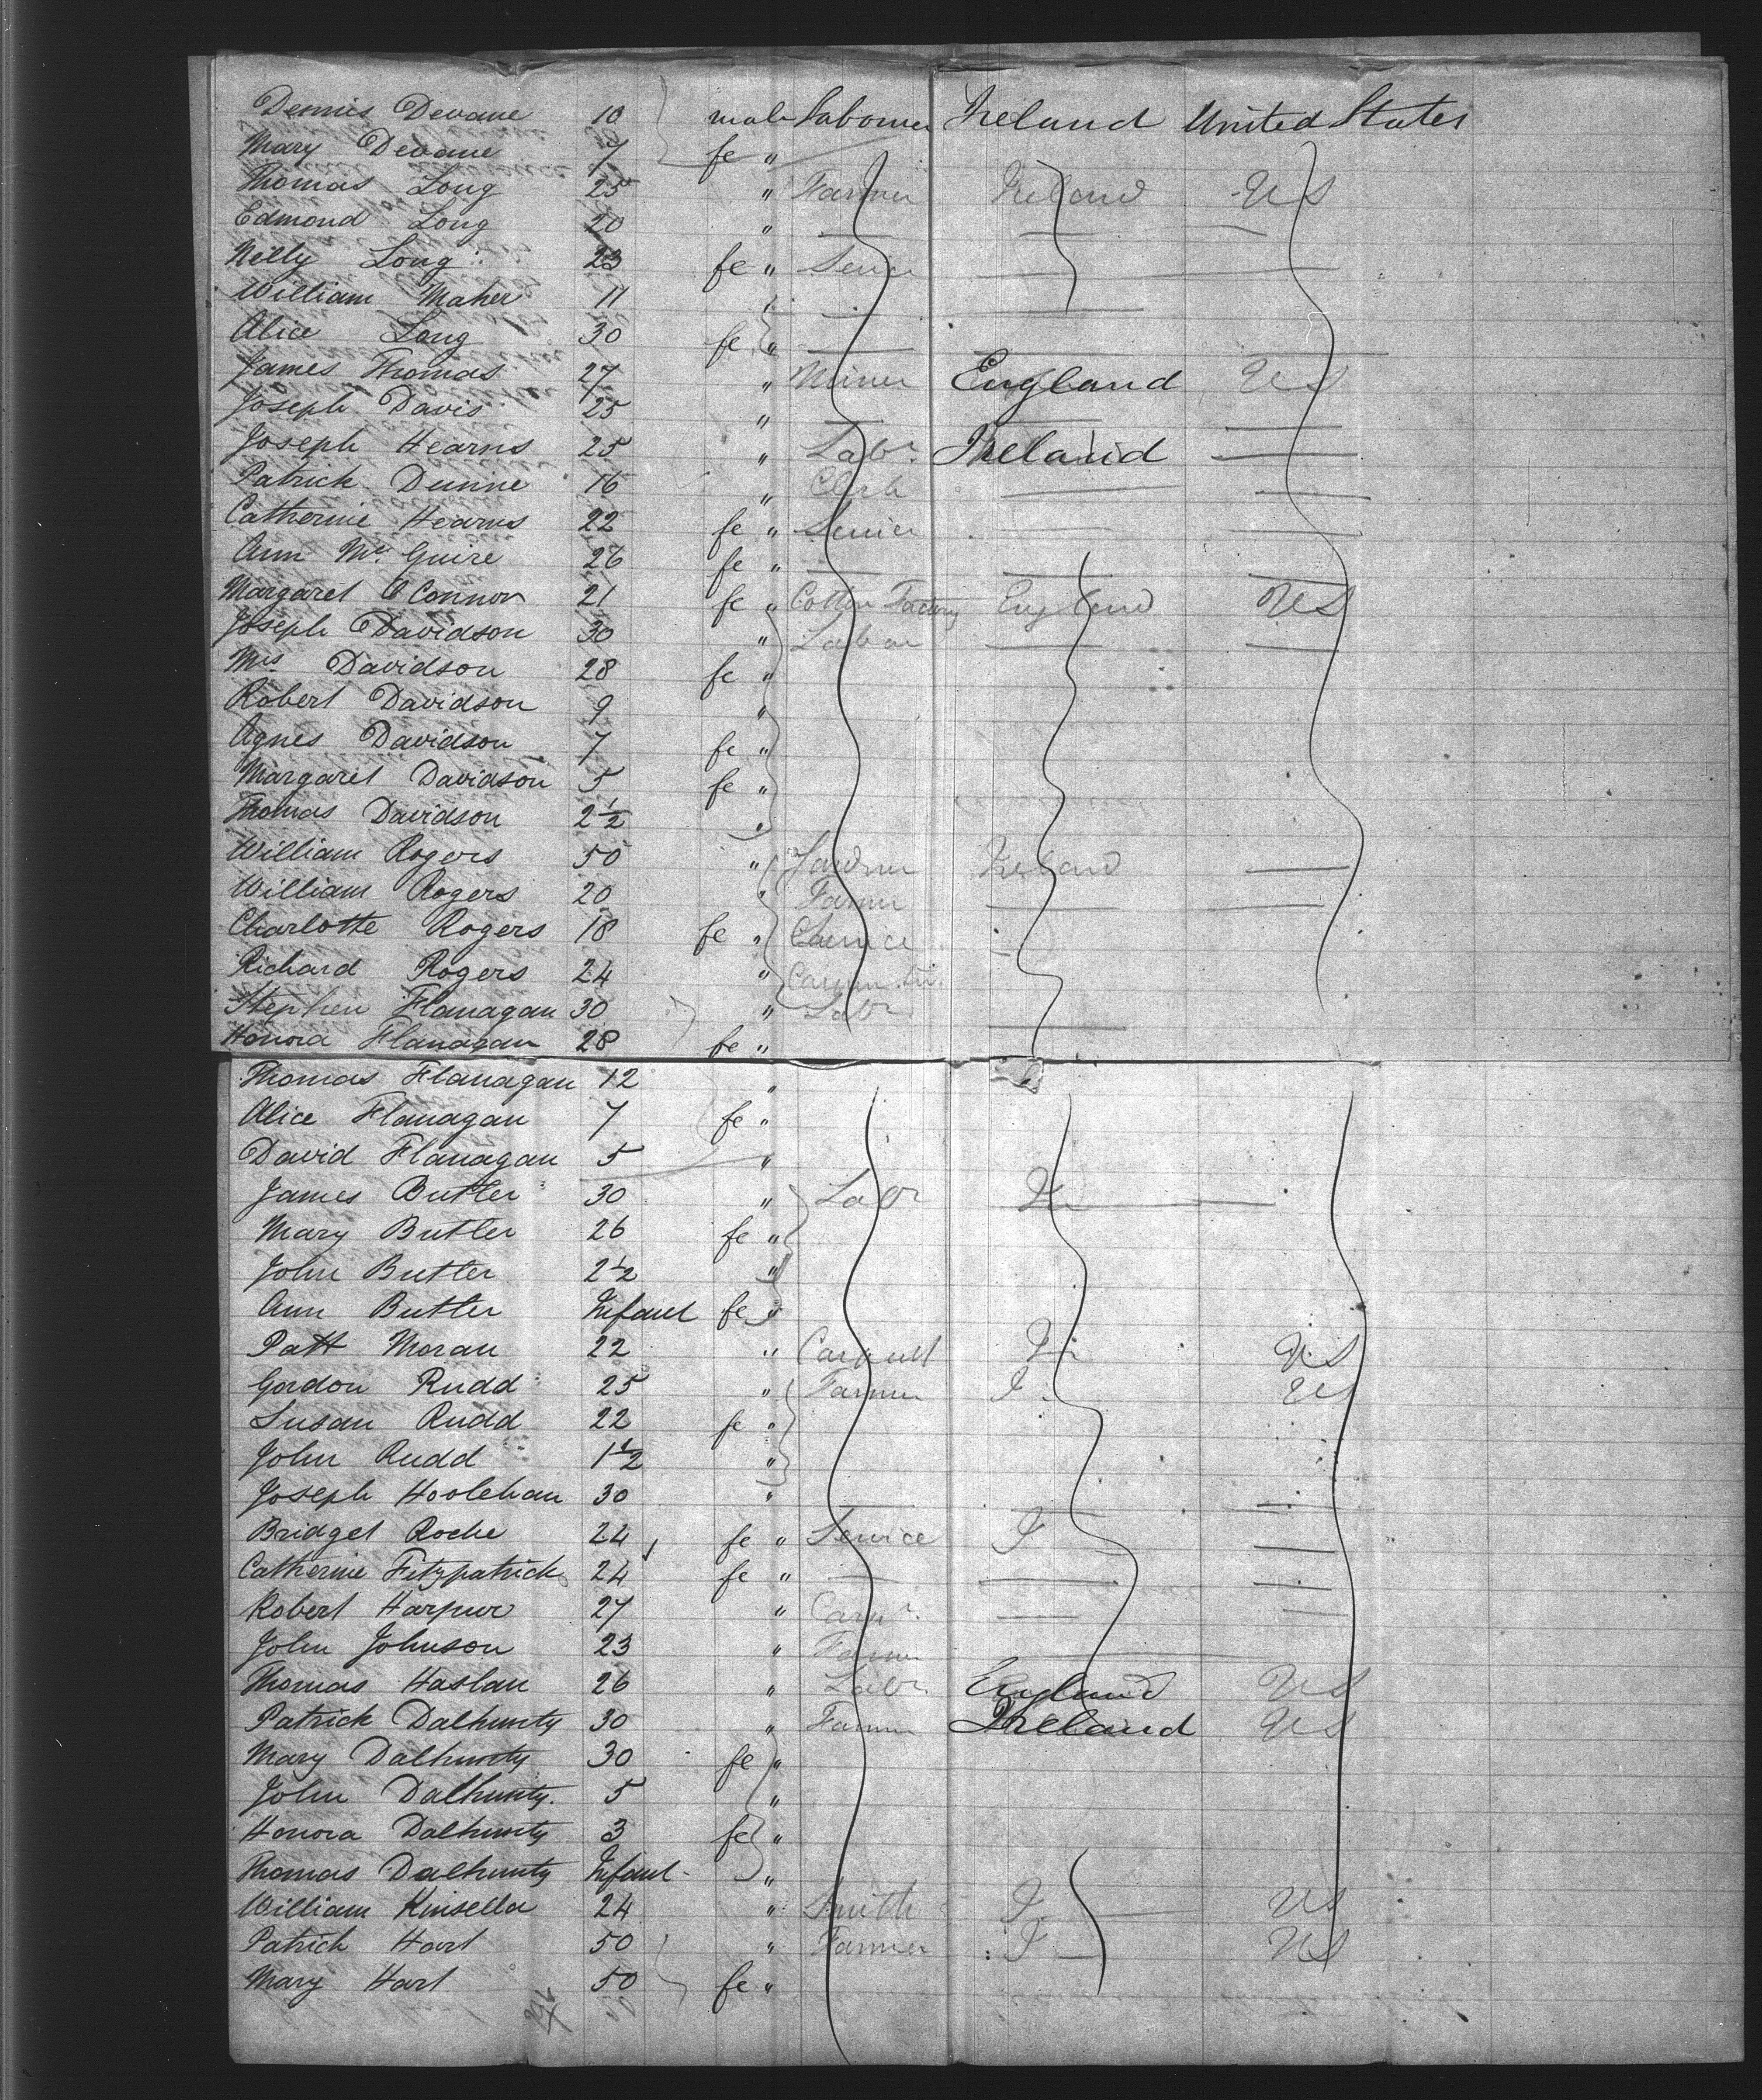 Dennis Devane 10 male Labourer Ireland United States
Mary Devane 7 fe "
Thomas Long 25 " Farmer Ireland US
Edmond Long 20 "
Nelly Long 23 fe "
William Maher 11 "
Alice Long 30 fe "
James Thomas 27 " Miner England US
Joseph Davis 25 "
Joseph Hearns 25 " Labr Ireland
Patrick Dunne 16 " Clerk
Catherine Hearns 22 fe " Service
Ann McGuire 26 fe "
Margaret O'Connor 21 fe " Cotton Factory England US
Joseph Davidson 30 " Labour
Mrs Davidson 28 fe "
Robert Davidson 9 "
Agnes Davidson 7 fe "
Margaret Davidson 5 fe "
Thomas Davidson 2 1/2 "
William Rogers 50 " Ireland
William Rogers 20 " Farmer
Charlotte Rogers 18 fe "
Richard Rogers 24 "
Stephen Flanagan 30 " Labr
Honora Flanagan 28 fe "
Thomas Flanagan 12 "
Alice Flanagan 7 fe "
David Flanagan 5 "
James Butler 30 " Labr Ir
Mary Butler 26 fe "
John Butler 2 1/2 "
Ann Butler Infant fe "
Patt Moran 22 " Ir US
Gordon Rudd 25 " Farmer I US
Susan Rudd 22 fe "
John Rudd 1 1/2 "
Joseph Hoolehan 30 "
Bridget Roche 24 fe " Service I
Catherine Fitzpatrick 24 fe "
Robert Harpur 27 "
John Johnson 23 " Farmer
Thomas Haslan 26 " Labr England US
Patrick Dalhunty 30 " Farmer Ireland US
Mary Dalhunty 30 fe "
John Dalhunty 5 "
Honora Dalhunty 3 fe "
Thomas Dalhunty Infant "
William Kinsella 24 " Smith I US
Patrick Hart 50 " Farmer I US
Mary Hart 50 fe "